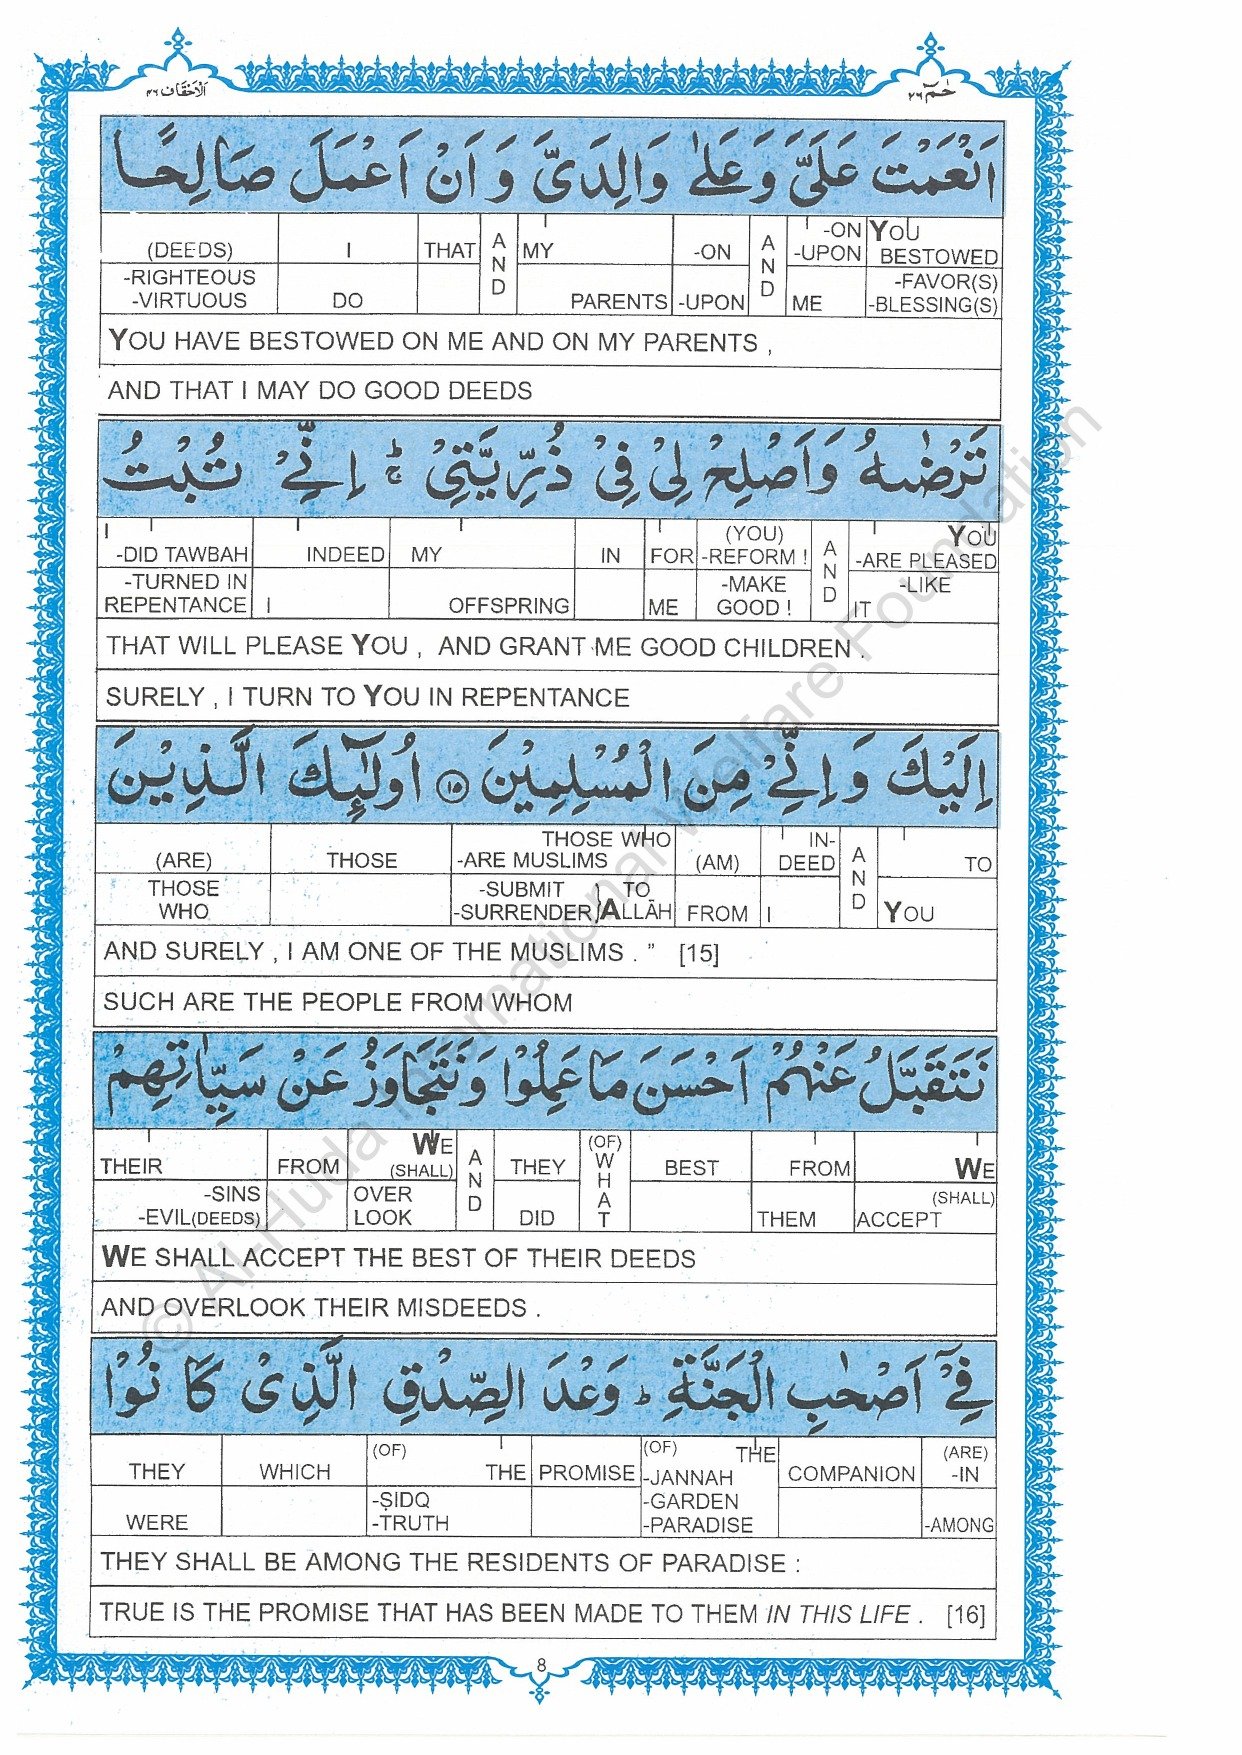 الاحقاف ٤٦
حٰمٓ ٢٦
اَنْعَمْتَ عَلَیَّ وَ عَلٰی وَالِدَیَّ وَ اَنْ اَعْمَلَ صَالِحًا
(DEEDS) I THAT AND MY -ON AND -ON YOU
-UPON BESTOWED
-RIGHTEOUS -FAVOR(S)
-VIRTUOUS DO PARENTS -UPON ME -BLESSING(S)
YOU HAVE BESTOWED ON ME AND ON MY PARENTS ,
AND THAT I MAY DO GOOD DEEDS
تَرْضٰىهُ وَ اَصْلِحْ لِیْ فِیْ ذُرِّیَّتِیْ ج اِنِّیْ تُبْتُ
I (YOU) AND YOU
-DID TAWBAH INDEED MY IN FOR -REFORM ! -ARE PLEASED
-TURNED IN -MAKE -LIKE
REPENTANCE I OFFSPRING ME GOOD ! IT
THAT WILL PLEASE YOU , AND GRANT ME GOOD CHILDREN .
SURELY , I TURN TO YOU IN REPENTANCE
اِلَیْكَ وَ اِنِّیْ مِنَ الْمُسْلِمِیْنَ ١٥ اُولٰٓئِكَ الَّذِیْنَ
THOSE WHO IN-
(ARE) THOSE -ARE MUSLIMS (AM) DEED AND TO
THOSE -SUBMIT ) TO
WHO -SURRENDER ) ALLĀH FROM I YOU
AND SURELY , I AM ONE OF THE MUSLIMS . ” [15]
SUCH ARE THE PEOPLE FROM WHOM
نَتَقَبَّلُ عَنْهُمْ اَحْسَنَ مَا عَمِلُوْا وَ نَتَجَاوَزُ عَنْ سَیِّاٰتِهِمْ
WE (OF)
THEIR FROM (SHALL) AND THEY WHAT BEST FROM WE
-SINS OVER (SHALL)
-EVIL(DEEDS) LOOK DID THEM ACCEPT
WE SHALL ACCEPT THE BEST OF THEIR DEEDS
AND OVERLOOK THEIR MISDEEDS .
فِیْٓ اَصْحٰبِ الْجَنَّةِ ط وَعْدَ الصِّدْقِ الَّذِیْ كَانُوْا
(OF) (OF) THE (ARE)
THEY WHICH THE PROMISE -JANNAH COMPANION -IN
-ṢIDQ -GARDEN
WERE -TRUTH -PARADISE -AMONG
THEY SHALL BE AMONG THE RESIDENTS OF PARADISE :
TRUE IS THE PROMISE THAT HAS BEEN MADE TO THEM IN THIS LIFE . [16]
8
© Al-Huda International Welfare Foundation